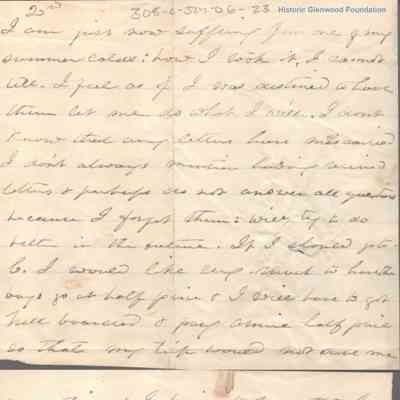 23rd 306-C-J01-06-23 Historic Glenwood Foundation
I am just now suffering from one of my
summer colds: how I took it, I cannot
tell. I feel as if I was destined to have
them let me do what I will. I don't
know that any letters have miscarried
I don't always mention having received
letters & perhaps do not answer all questions
because I forget them: will try to do
better in the future. If I should go to
C. I would like my trunk
go at half price & I will have to get
Nell boarded & pay half price
so that my trip would not cost me